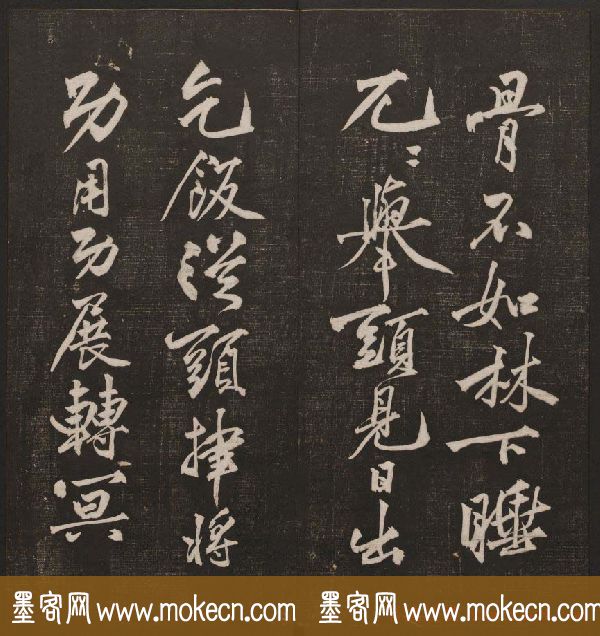 骨不如林下睡
兀〻舉頭見日出
乞飯從頭捽将
功用功展轉冥
墨客网 www.mokecn.com 墨客网 www.mokecn.com